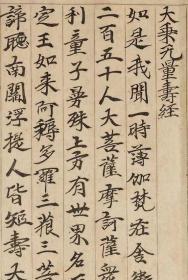 大乘无量壽經
如是我聞一時薄伽梵在舍
二百五十人大菩薩摩訶薩
利童子曼殊上方有世界名
定王如來阿耨多羅三藐三
諦聽南閻浮提人皆短壽大